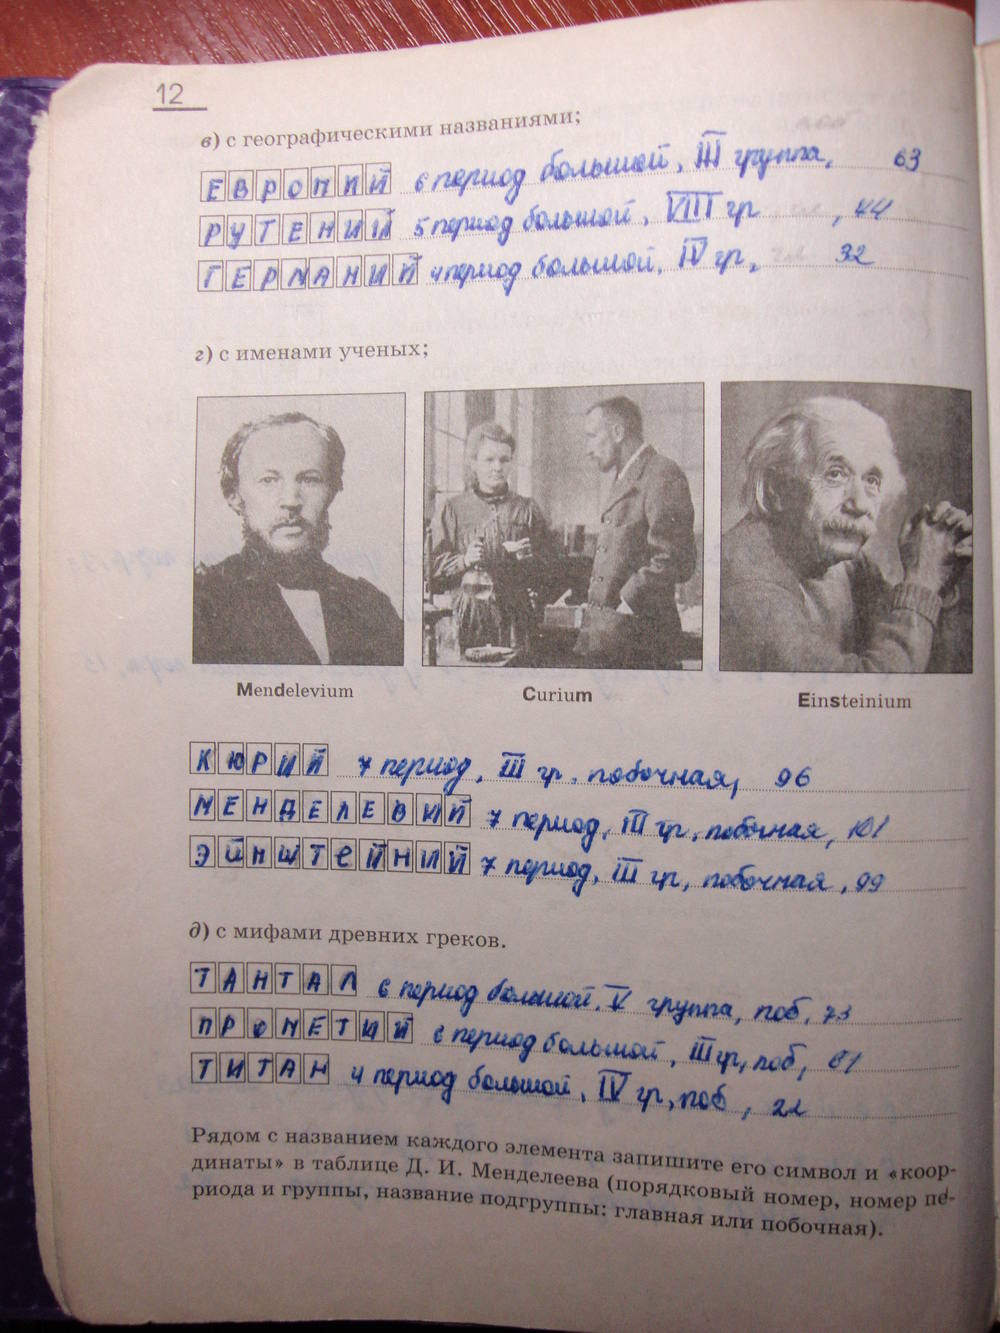 12
в) с географическими названиями;
ЕВРОПИЙ 6 период большой, III группа, 63
РУТЕНИЙ 5 период большой, VIII гр , 44
ГЕРМАНИЙ 4 период большой, IV гр, 32
г) с именами ученых;
Mendelevium Curium Einsteinium
КЮРИЙ 7 период, III гр. побочная, 96
МЕНДЕЛЕВИЙ 7 период, III гр, побочная, 101
ЭЙНШТЕЙНИЙ 7 период, III гр, побочная, 99
д) с мифами древних греков.
ТАНТАЛ 6 период большой, V группа, поб, 73
ПРОМЕТИЙ 6 период большой, III гр, поб, 61
ТИТАН 4 период большой, IV гр, поб, 22
Рядом с названием каждого элемента запишите его символ и «коор-
динаты» в таблице Д. И. Менделеева (порядковый номер, номер пе-
риода и группы, название подгруппы: главная или побочная).